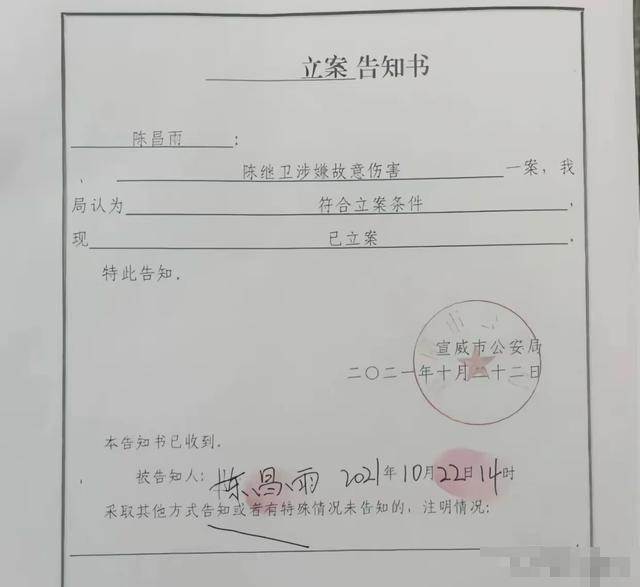 立案 告知书
陈昌雨:
、陈继卫涉嫌故意伤害一案,我
局认为符合立案条件,
现已立案.
特此告知.
宣威市公安局
二〇二一年十月二十二日
本告知书已收到.
被告知人:陈昌雨 2021年10月22日14时
采取其他方式告知或者有特殊情况未告知的,注明情况: